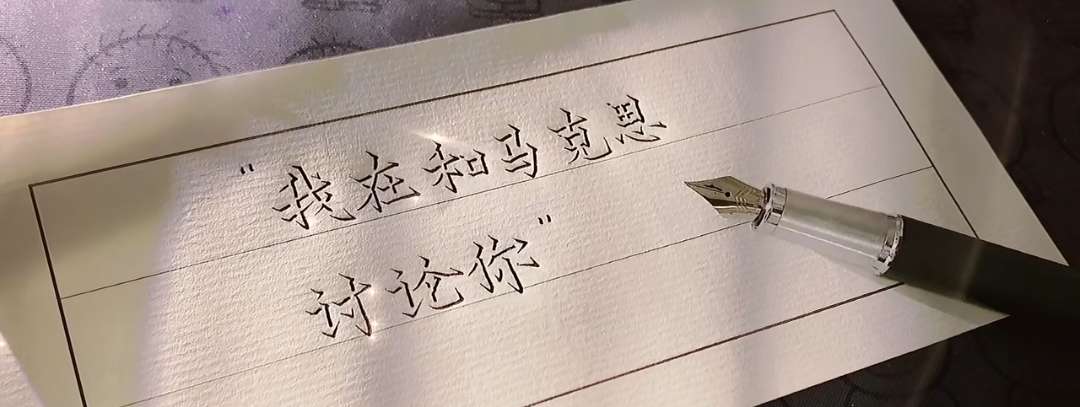 "我在和马克思
讨论你"